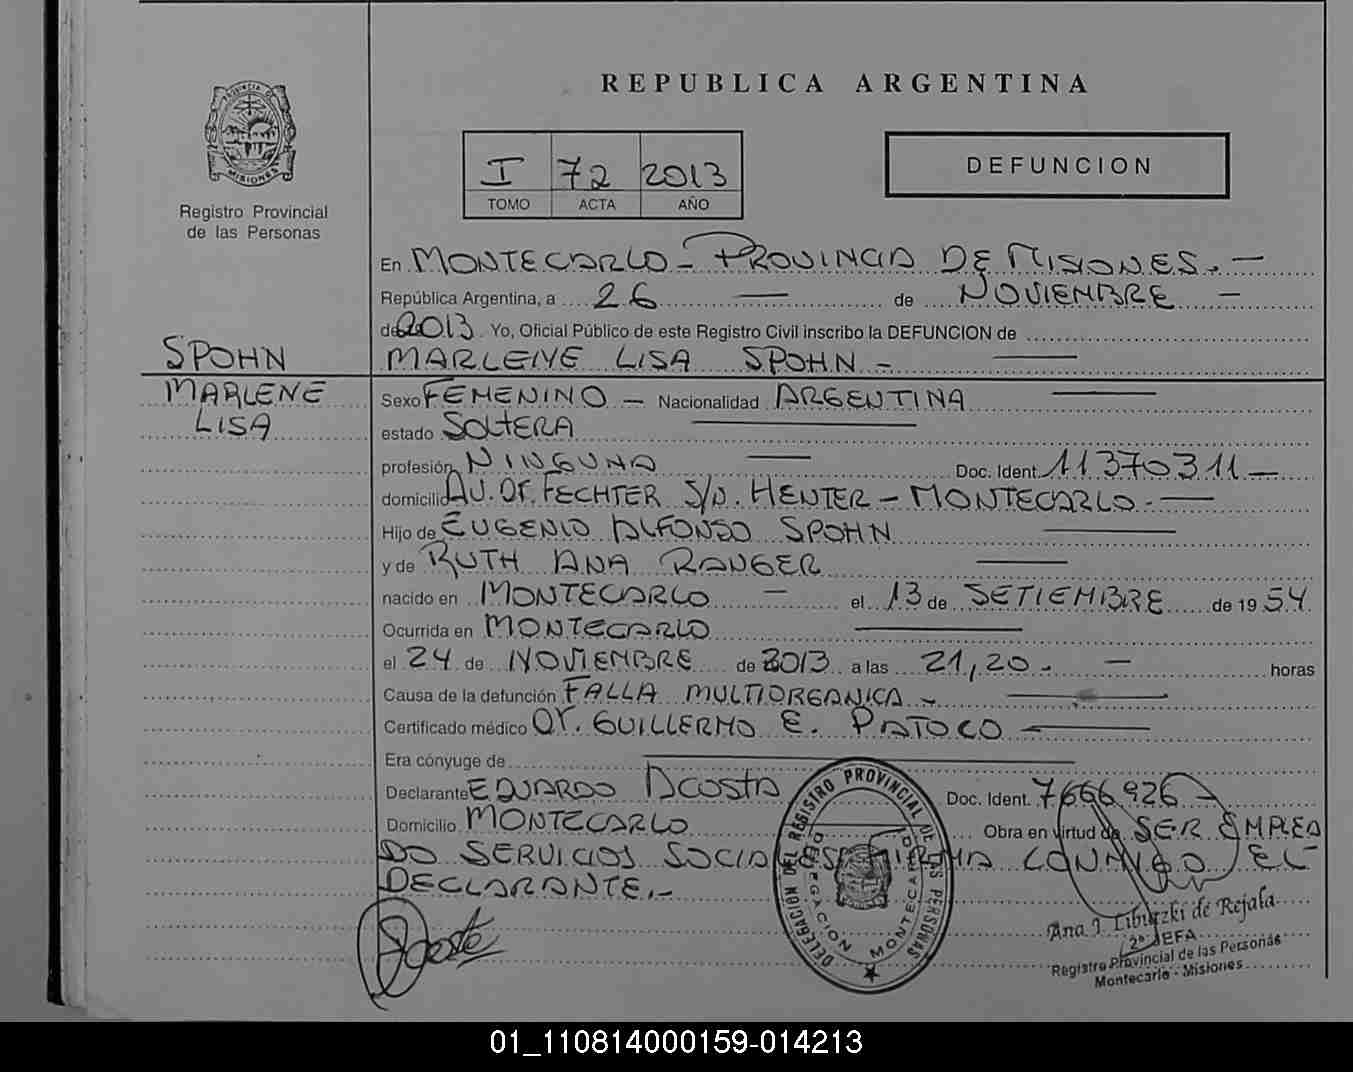 REPUBLICA ARGENTINA
PROVINCIA DE
MISIONES
Registro Provincial
de las Personas
I 72 2013
TOMO ACTA AÑO
DEFUNCION
En MONTECARLO - PROVINCIA DE MISIONES. -
República Argentina, a 26 - de NOVIEMBRE -
de 2013 Yo, Oficial Público de este Registro Civil inscribo la DEFUNCION de
MARLENE LISA SPOHN -
SPOHN
MARLENE
LISA
Sexo FEMENINO - Nacionalidad ARGENTINA
estado SOLTERA
profesión NINGUNA Doc. Ident. 11370311 -
domicilio AV. Dr. FECHTER S/N. HENTER - MONTECARLO. -
Hijo de EUGENIO ALFONSO SPOHN
y de RUTH ANA RANGER
nacido en MONTECARLO - el 13 de SETIEMBRE de 1954
Ocurrida en MONTECARLO
el 24 de NOVIEMBRE de 2013 a las 21,20 - horas
Causa de la defunción FALLA MULTIORGANICA -
Certificado médico Dr. GUILLERMO E. PATOCO -
Era cónyuge de
Declarante EDUARDO ACOSTA Doc. Ident. 7666926 -
Domicilio MONTECARLO Obra en virtud de SER EMPLEA
DO SERVICIOS SOCIALES. FIRMA CONMIGO EL
DECLARANTE. -
Acosta
DELEGACIÓN DEL REGISTRO PROVINCIAL DE LAS PERSONAS
DELEGACION MONTECARLO
Ana I. Libutzki de Rejala
2ª JEFA
Registro Provincial de las Personas
Montecarlo - Misiones
01_110814000159-014213